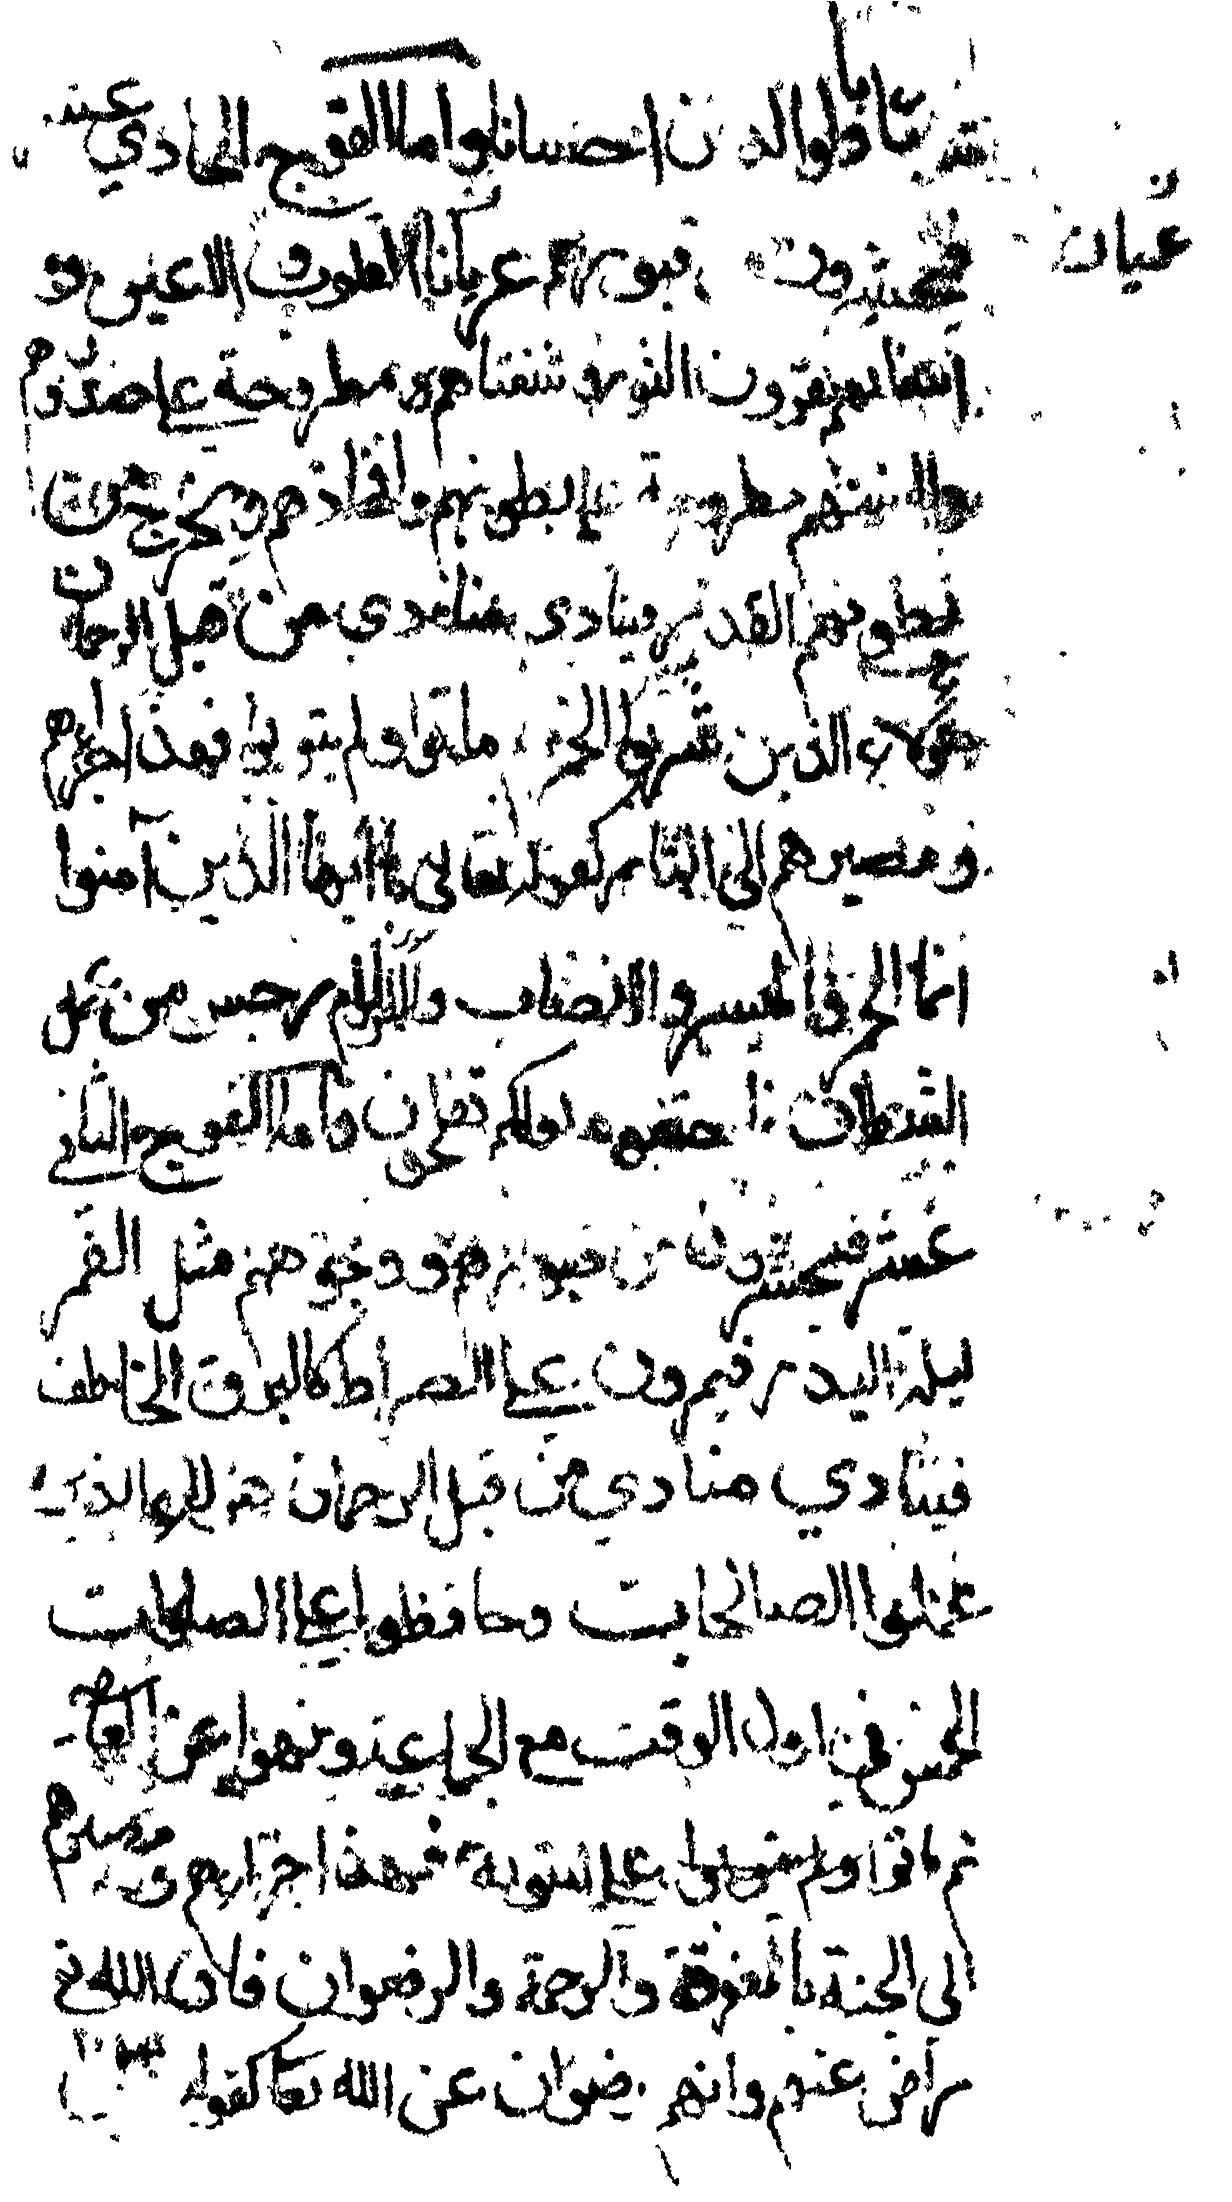 شيئا وبالوالدين احسانا واما الفوج الحادي عشر
فيحشرون من قبورهم عميان القلوب والاعين و
اسنانهم كقرون الثور وشفتاهم مطروحة على صدورهم
والسنتهم مطروحة على بطونهم وافخاذهم ويخرج من
بطونهم القذر فينادي منادي من قبل الرحمان
هؤلاء الذين شربوا الخمر ماتوا ولم يتوبوا فهذا جزاؤهم
ومصيرهم الى النار كقوله تعالى يا ايها الذين آمنوا
انما الخمر والميسر والانصاب والازلام رجس من عمل
الشيطان فاجتنبوه لعلكم تفلحون واما الفوج الثاني
عشر فيحشرون من قبورهم ووجوههم مثل القمر
ليلة البدر فيمرون على الصراط كالبرق الخاطف
فينادي منادي من قبل الرحمان هؤلاء الذين
عملوا الصالحات وحافظوا على الصلوات
الخمس في اول الوقت مع الجماعة ونهوا عن المعاصي
ثم ماتوا ولم على التوبة فهذا جزاؤهم ومصيرهم
الى الجنة بالمغفرة والرحمة والرضوان فلان الله تعالى
راض عنهم وانهم رضوان عن الله تعا كقوله
عميان